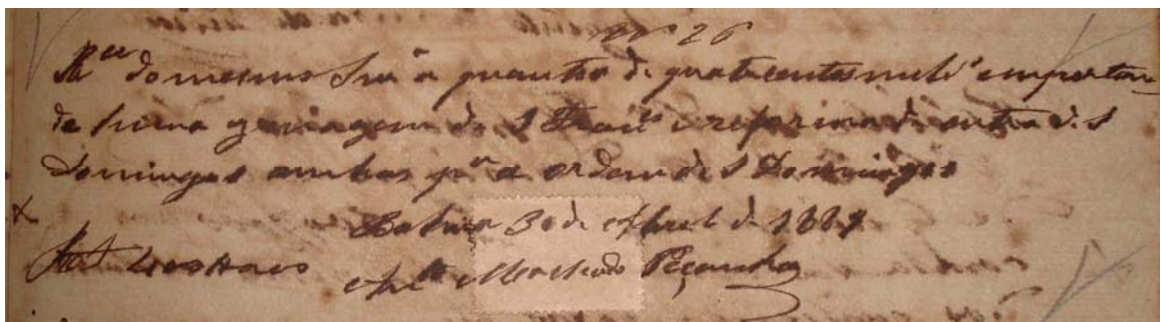 Nº 26
Rce do mesmo Snr a quantia de quatrocentos mil rs emportan-
de huma Imagem de S Franco e reforma de outra de S
Domingos ambas pa a ordem de S Domingos
Bahia 30 de Abril de 1881
Anto Machado Peçanha